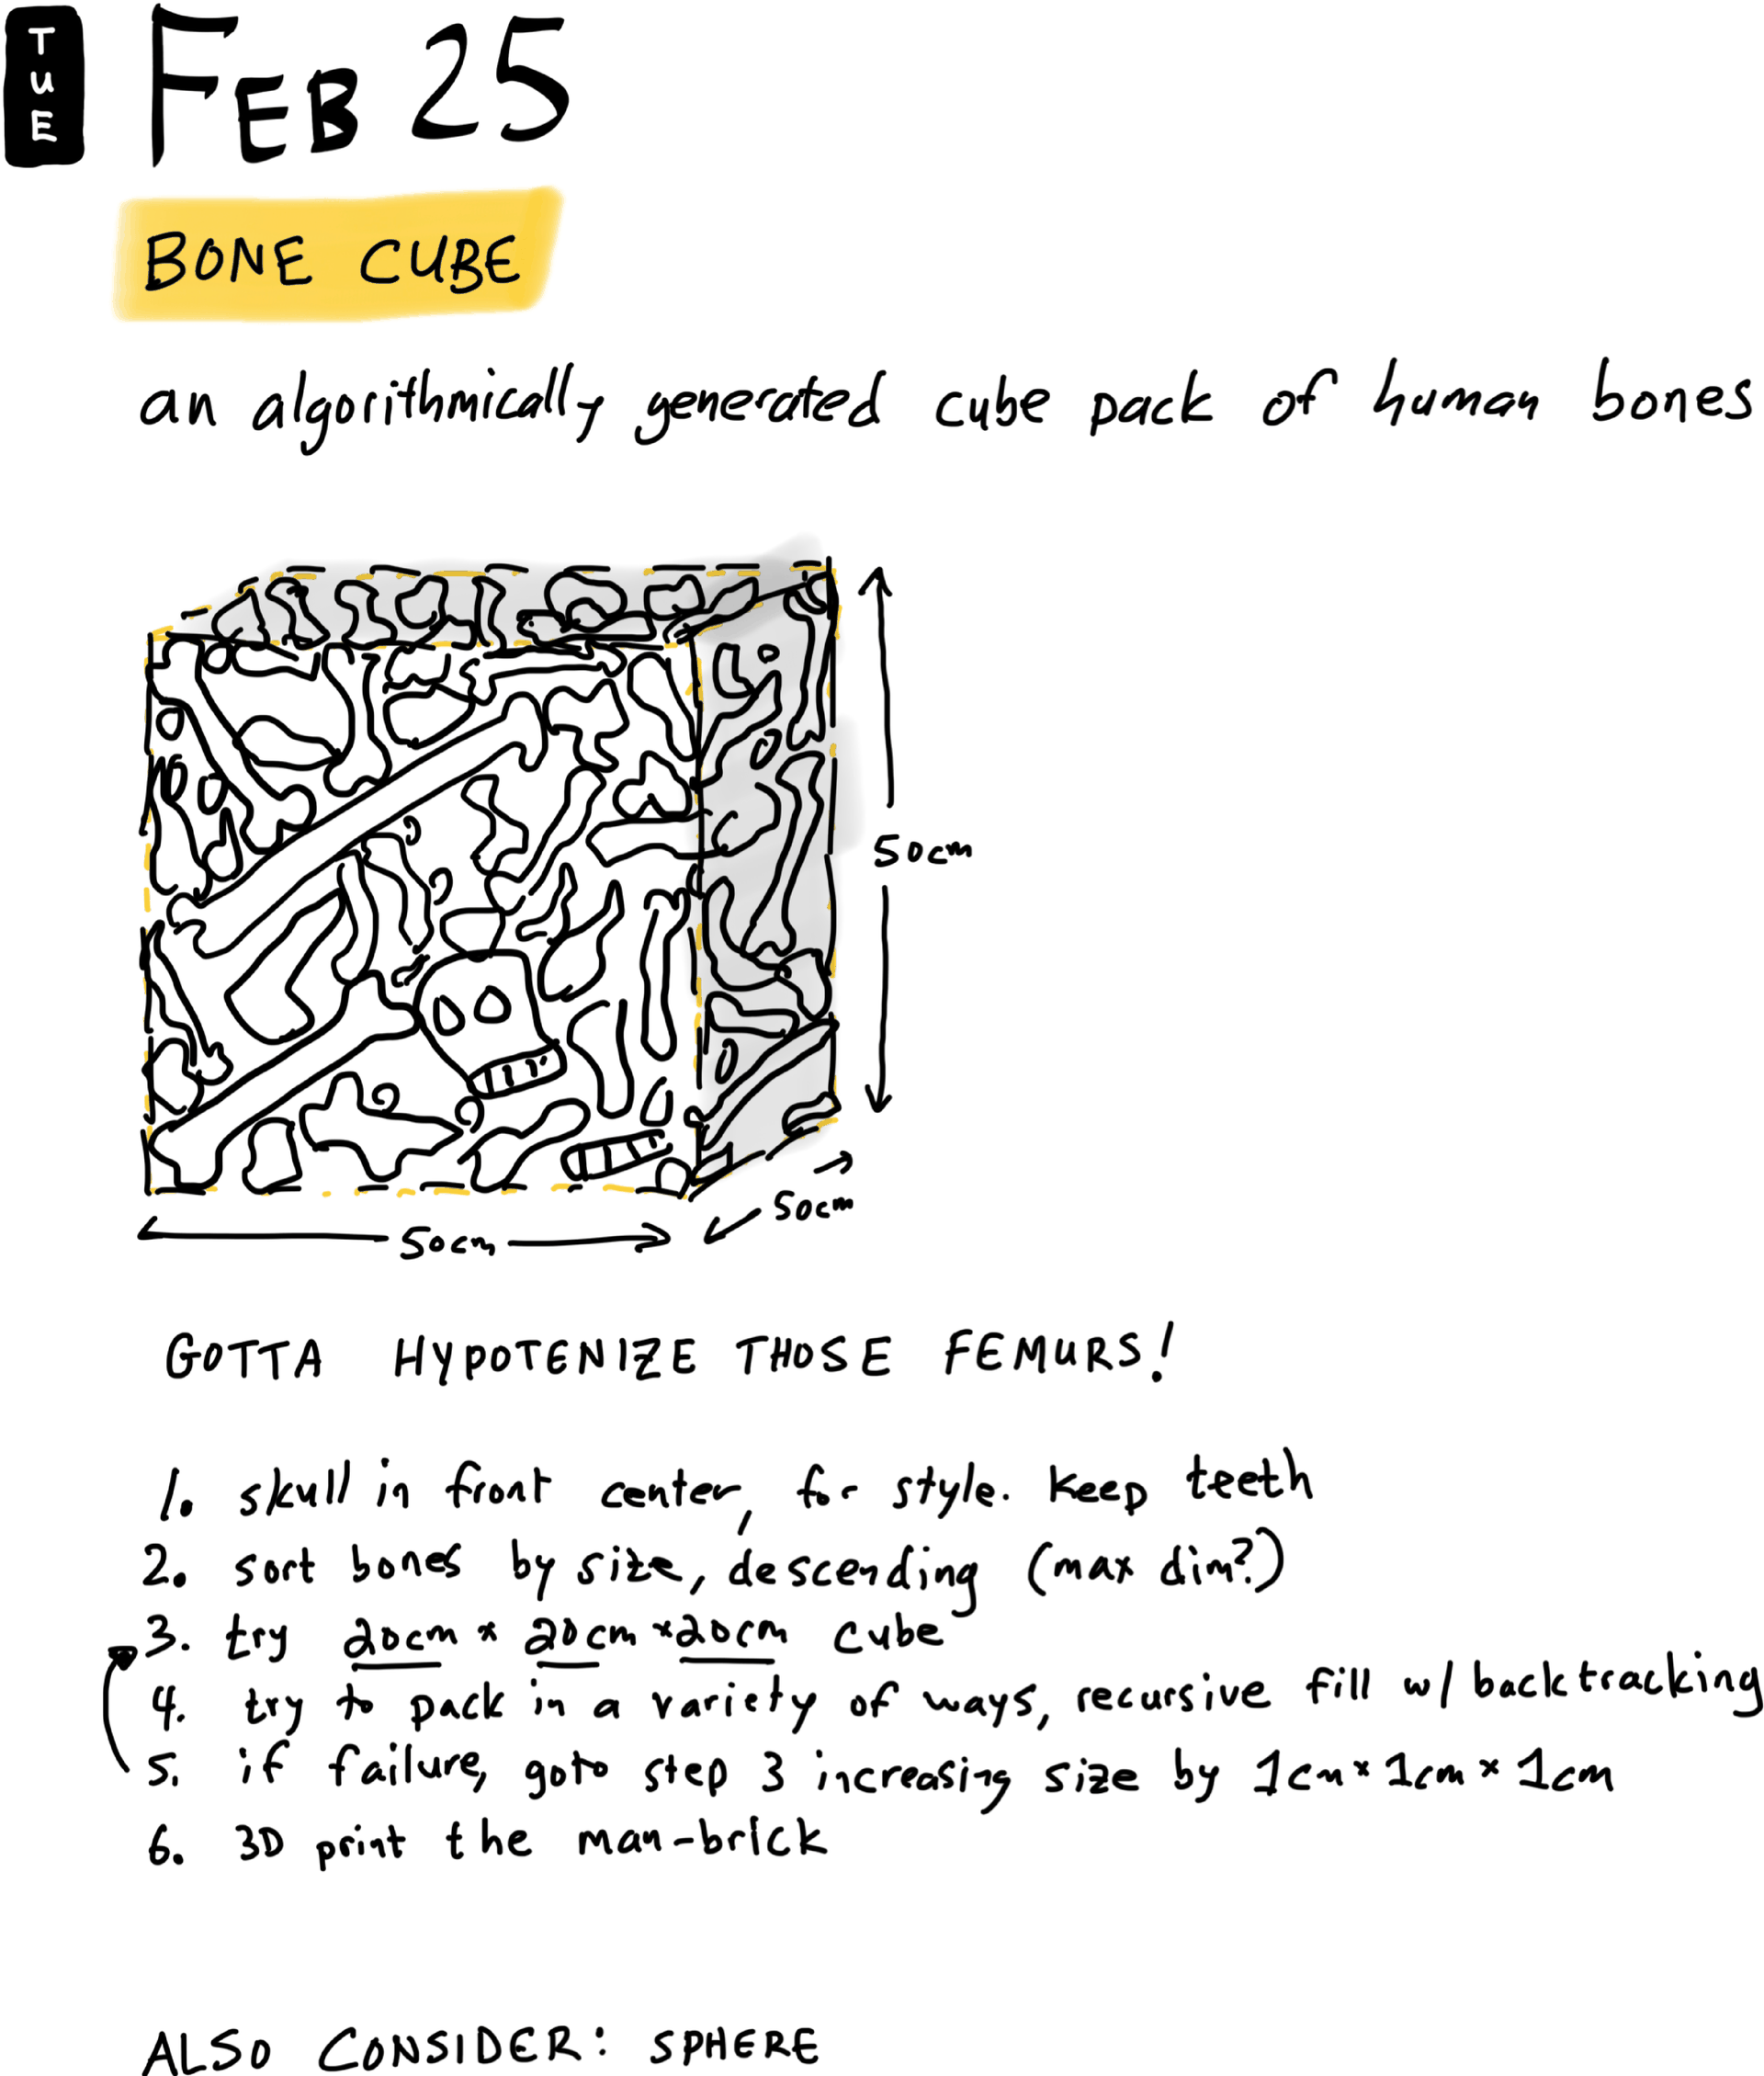 TUE
FEB 25
BONE CUBE
an algorithmically generated cube pack of human bones
50cm
50cm
50cm
GOTTA HYPOTENIZE THOSE FEMURS!
1. skull in front center, for style. Keep teeth
2. sort bones by size, descending (max dim?)
3. try 20cm x 20cm x 20cm cube
4. try to pack in a variety of ways, recursive fill w/ backtracking
5. if failure, goto step 3 increasing size by 1cm x 1cm x 1cm
6. 3D print the man-brick
ALSO CONSIDER: SPHERE